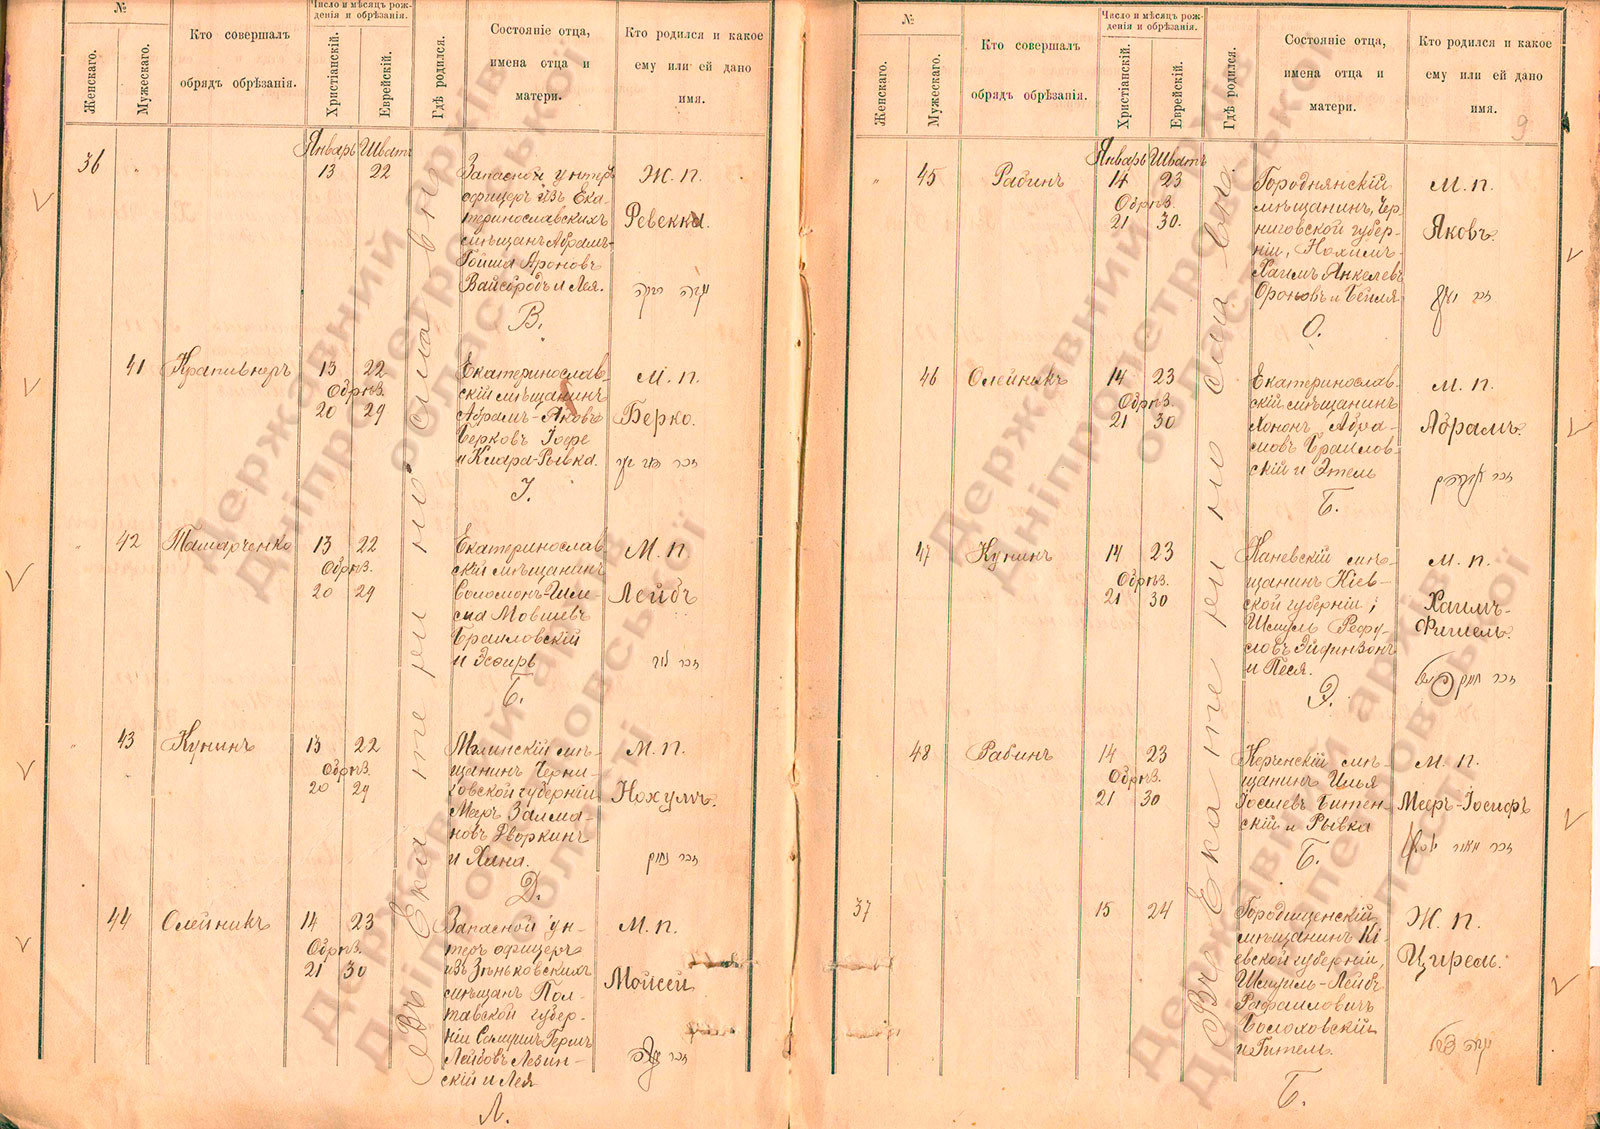 №
Женскаго.
Мужескаго.
Кто совершалъ
обрядъ обрѣзанія.
Число и мѣсяцъ рож-
денія и обрѣзанія.
Христіанскій.
Еврейскій.
Гдѣ родился.
Состояніе отца,
имена отца и
матери.
Кто родился и какое
ему или ей дано
имя.
Январь Шватъ
36
13 22
Запасной унтеръ
офицеръ изъ Ека-
теринославскихъ
мѣщанъ Абрамъ-
Гойша Ароновъ
Вайсбродъ и Лея.
В.
Ж. П.
Ревекка.
41
Крапивнеръ
13 22
Обрѣз.
20 29
Екатеринослав-
скій мѣщанинъ
Абрамъ-Яковъ
Берковъ Іофе
и Клара-Рывка.
І.
М. П.
Берко.
42
Тамарченко
13 22
Обрѣз.
20 29
Екатеринослав-
скій мѣщанинъ
Соломонъ-Шли-
ма Мовшевъ
Браиловскій
и Эсѳирь
Б.
М. П.
Лейбъ
זכר לייב
43
Кунинъ
13 22
Обрѣз.
20 29
Мглинскій мѣ-
щанинъ Черни-
говской губерніи
Мееръ Залма-
новъ Дворкинъ
и Хана.
Д.
М. П.
Нохумъ.
זכר נחום
44
Олейникъ
14 23
Обрѣз.
21 30
Запасной ун-
теръ офицеръ
изъ Зѣньковскихъ
мѣщанъ Пол-
тавской губер-
ніи Самуилъ Герш
Лейбовъ Левин-
скій и Лея
Л.
М. П.
Мойсей
זכר משה
Въ Екатеринославѣ
№
Женскаго.
Мужескаго.
Кто совершалъ
обрядъ обрѣзанія.
Число и мѣсяцъ рож-
денія и обрѣзанія.
Христіанскій.
Еврейскій.
Гдѣ родился.
Состояніе отца,
имена отца и
матери.
Кто родился и какое
ему или ей дано
имя.
9
Январь Шватъ
45
Рабинъ
14 23
Обрѣз.
21 30.
Городнянскій
мѣщанинъ, Чер-
ниговской губер-
ніи, Нохимъ-
Хаимъ Янкелевъ
Ороновъ и Бейля
О.
М. П.
Яковъ.
זכר יעקב
46
Олейникъ
14 23
Обрѣз.
21 30
Екатеринослав-
скій мѣщанинъ
Хононъ Абра-
мовъ Браилов-
скій и Этель
Б.
М. П.
Абрамъ.
זכר אברהם
47
Кунинъ
14 23
Обрѣз.
21 30
Каневскій мѣ-
щанинъ Кіев-
ской губерніи;
Шмуль Рефу-
ловъ Эйфинзонъ
и Песя.
Э.
М. П.
Хаимъ-
Фишель.
זכר חיים פישל
48
Рабинъ
14 23
Обрѣз.
21 30
Керченскій мѣ-
щанинъ Илья
Іоселевъ Битен-
скій и Рывка
Б.
М. П.
Мееръ-Іосифъ
זכר מאיר יוסף
37
15 24
Городищенскій
мѣщанинъ Кі-
евской губерніи,
Шмуиль-Лейбъ
Рафаиловичъ
Болоховскій
и Гительь.
Б.
Ж. П.
Цирель.
Въ Екатеринославѣ.
Державний архів
Дніпропетровської
області